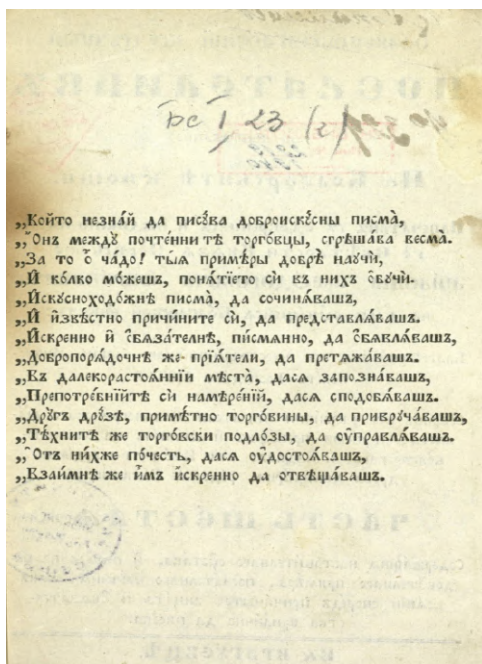 БС I 23 (2)
„Който незна́й да писꙋ́ва доброискꙋ́сны писма̀,
„Онъ междꙋ̀ почте́нни тѣ торго́вцы, сгрѣша́ва весма̀.
„За то ѽ ча́до! ты́я примѣ́ры добрѣ̀ наꙋчѝ,
„И҆ ко́лко мо́жешъ, поня́тїето сѝ въ нихъ ѡ҆бꙋчѝ.
„И҆скꙋсноходо́жнѣ писма̀, да сочиня́вашъ,
„И҆ и҆звѣ́стно причи́ните сѝ, да представля́вашъ.
„И҆́скренно и҆ ѡ҆бѧза́телнѣ, пи́смянно, да ѡ҆бѧвля́вашъ,
„Добропоря́дочнѣ же прїѧ́тели, да претѧжа́вашъ.
„Въ далекорастоѧ́ннїи мѣста̀, дасѧ запозна́вашъ,
„Препотре́бнїйтѣ сѝ намѣре́нїй, дасѧ сподобѧ́вашъ.
„Дрꙋгъ дрꙋ́зѣ, примѣ́тно торго́вины, да приврꙋча́вашъ,
„Тѣ́хните же торго́вски подло́зы, да ᲂу҆правлѧ́вашъ.
„Отъ ни́хже по́честь, дасѧ ᲂу҆достоѧ́вашъ,
„Взаи́мнѣ же и҆̀мъ и҆́скренно да отвѣща́вашъ.